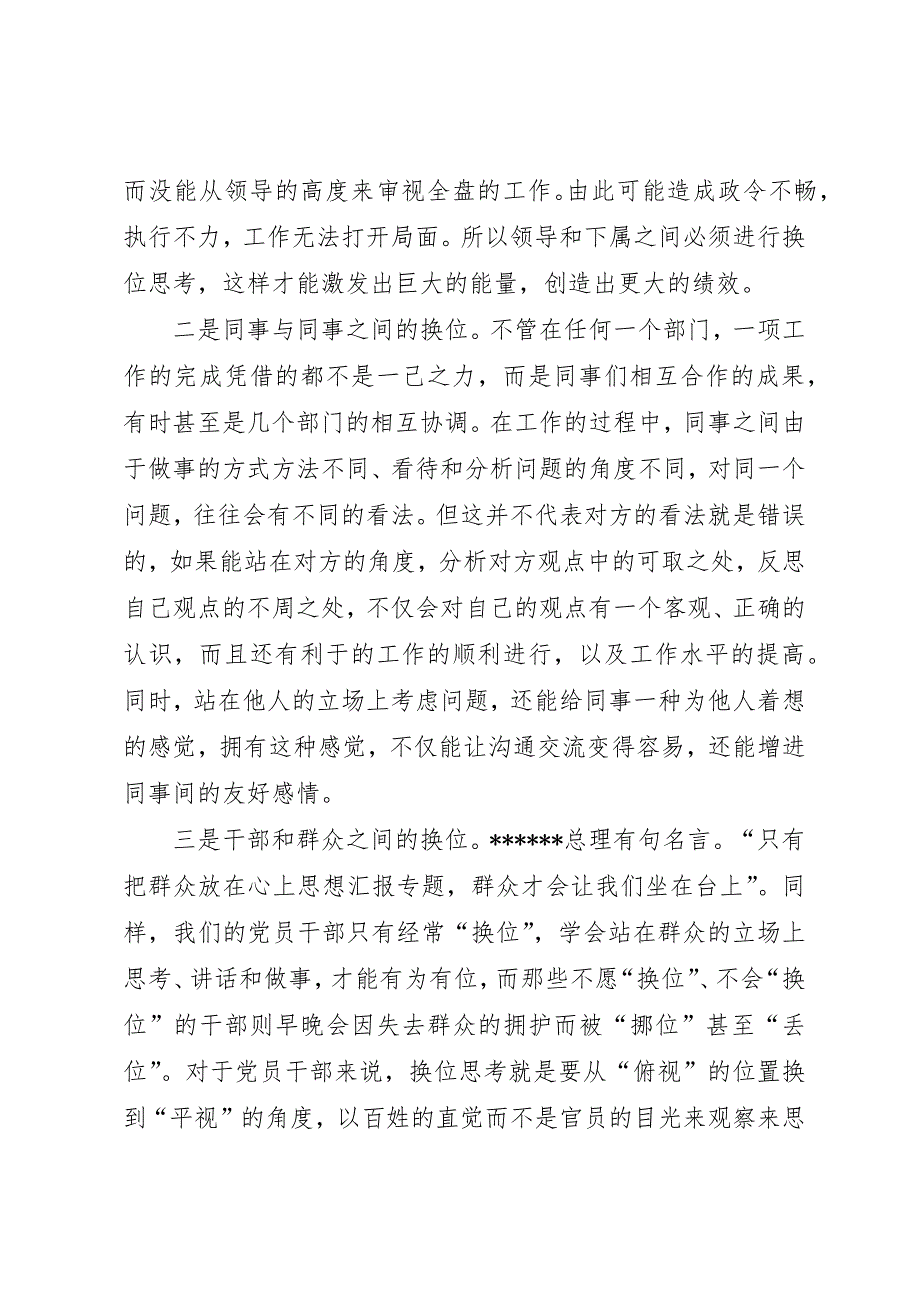 而没能从领导的高度来审视全盘的工作。由此可能造成政令不畅，
执行不力，工作无法打开局面。所以领导和下属之间必须进行换
位思考，这样才能激发出巨大的能量，创造出更大的绩效。
二是同事与同事之间的换位。不管在任何一个部门，一项工
作的完成凭借的都不是一己之力，而是同事们相互合作的成果，
有时甚至是几个部门的相互协调。在工作的过程中，同事之间由
于做事的方式方法不同、看待和分析问题的角度不同，对同一个
问题，往往会有不同的看法。但这并不代表对方的看法就是错误
的，如果能站在对方的角度，分析对方观点中的可取之处，反思
自己观点的不周之处，不仅会对自己的观点有一个客观、正确的
认识，而且还有利于的工作的顺利进行，以及工作水平的提高。
同时，站在他人的立场上考虑问题，还能给同事一种为他人着想
的感觉，拥有这种感觉，不仅能让沟通交流变得容易，还能增进
同事间的友好感情。
三是干部和群众之间的换位。******总理有句名言。“只有
把群众放在心上思想汇报专题，群众才会让我们坐在台上”。同
样，我们的党员干部只有经常“换位”，学会站在群众的立场上
思考、讲话和做事，才能有为有位，而那些不愿“换位”、不会“换
位”的干部则早晚会因失去群众的拥护而被“挪位”甚至“丢
位”。对于党员干部来说，换位思考就是要从“俯视”的位置换
到“平视”的角度，以百姓的直觉而不是官员的目光来观察来思